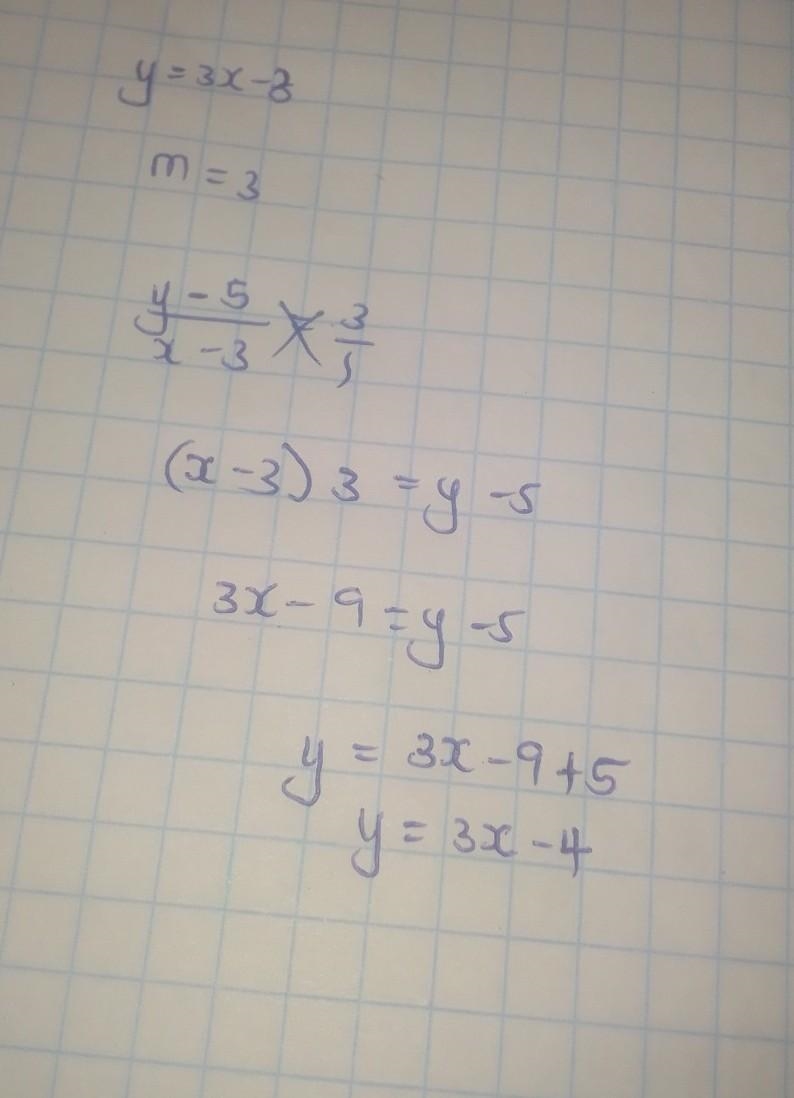 y = 3x - 8
m = 3
y - 5 / x - 3 = 3 / 1
(x - 3) 3 = y - 5
3x - 9 = y - 5
y = 3x - 9 + 5
y = 3x - 4